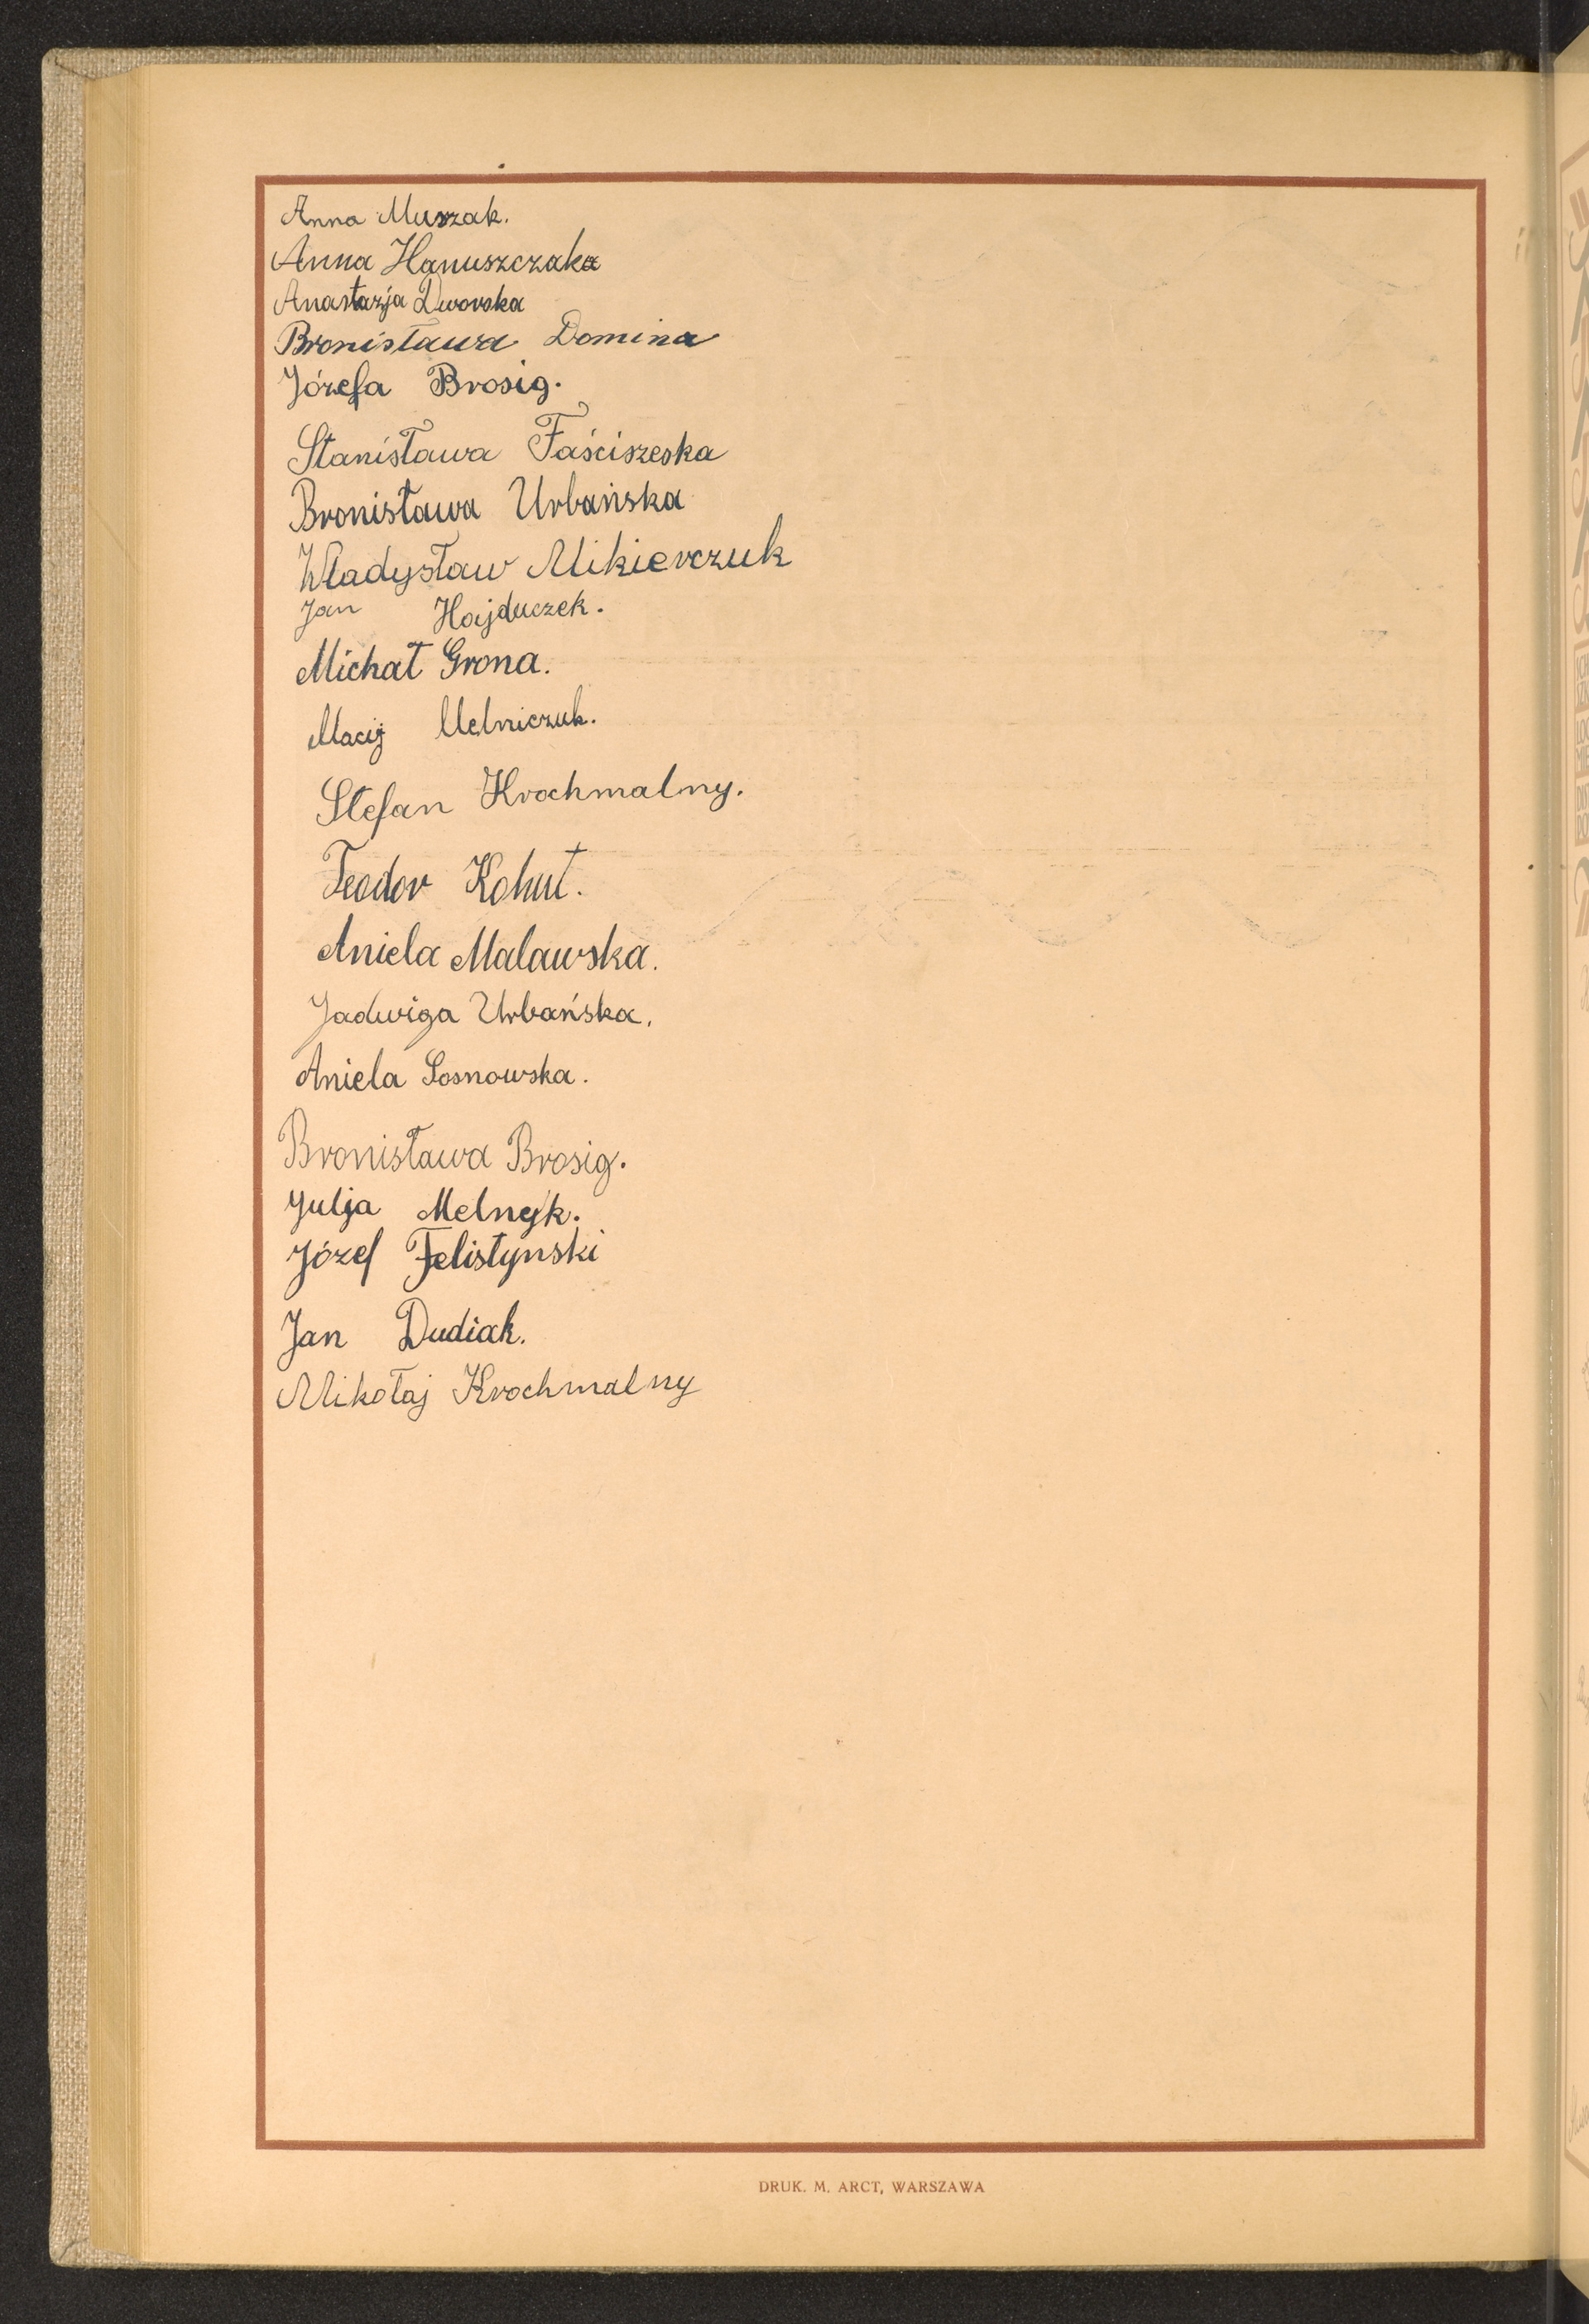 Anna Muszak.
Anna Hanuszczaka
Anastazja Dworska
Bronisława Domina
Józefa Brosig.
Stanisława Faściszeska
Bronisława Urbańska
Władysław Mikierczuk
Jan Hajduczek.
Michał Grona.
Macij Melniczuk.
Stefan Krochmalny.
Teodor Kohut.
Aniela Malawska.
Jadwiga Urbańska.
Aniela Sosnowska.
Bronisława Brosig.
Julja Melnyk.
Józef Felistynski
Jan Dudiak.
Mikołaj Krochmalny
DRUK. M. ARCT, WARSZAWA